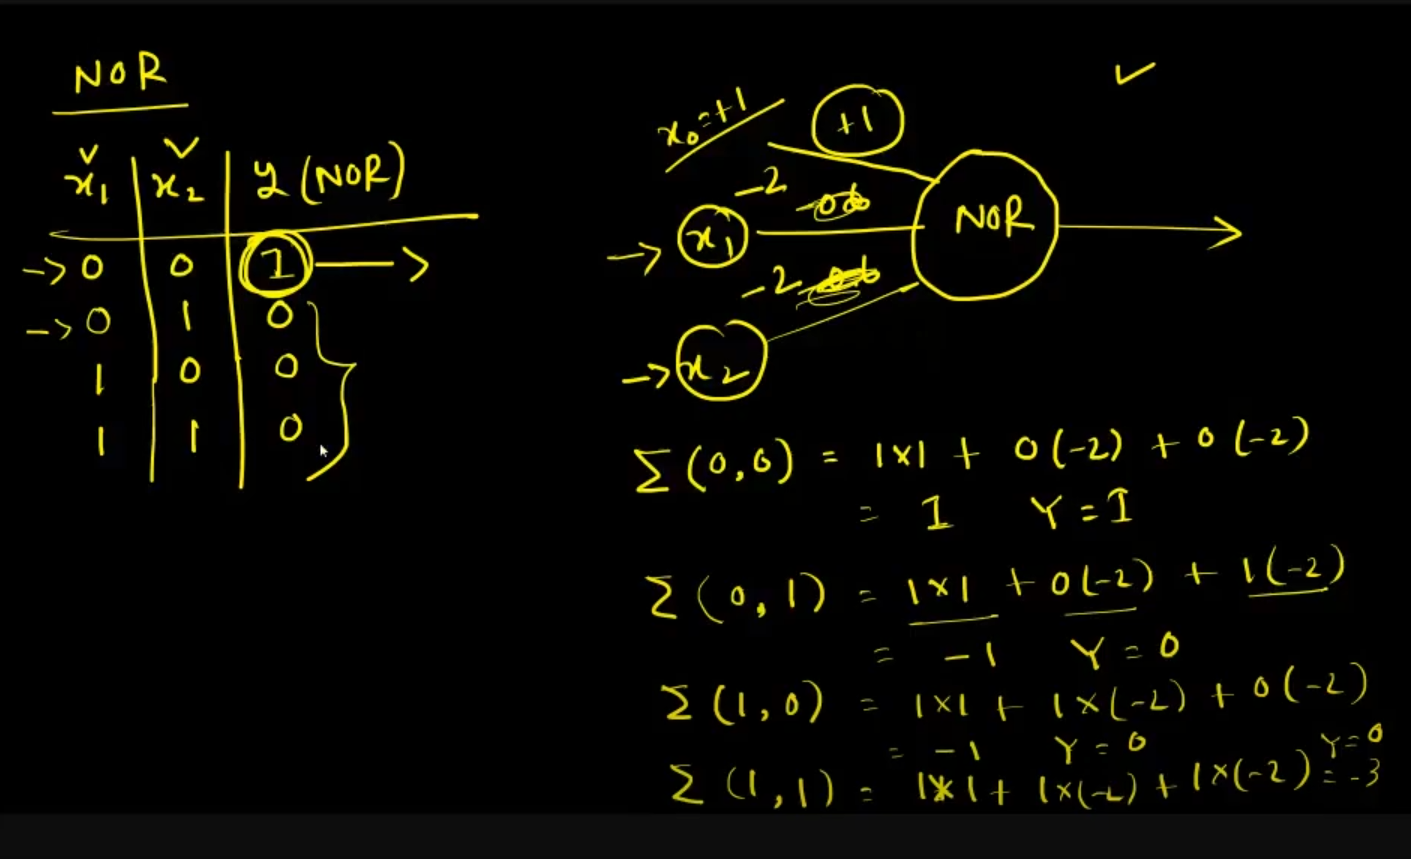 NOR
x₁ x₂ y (NOR)
0 0 1
0 1 0
1 0 0
1 1 0
x₀=+1
+1
-2
x₁
NOR
-2
x₂
Σ(0,0) = 1×1 + 0(-2) + 0(-2)
= 1 Y=1
Σ(0,1) = 1×1 + 0(-2) + 1(-2)
= -1 Y=0
Σ(1,0) = 1×1 + 1×(-2) + 0(-2)
= -1 Y=0
Σ(1,1) = 1×1 + 1×(-2) + 1×(-2) = -3
Y=0